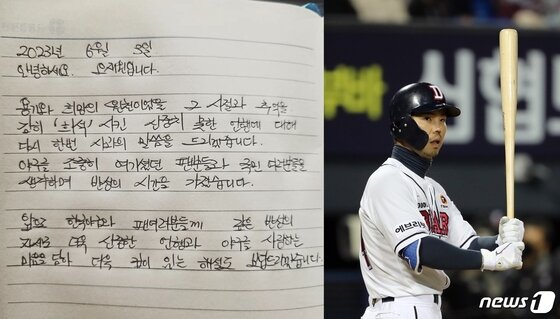 2023년 6월
안녕하세요. 오재원입니다.
용기와 희망의 원천이었을 그 시절과 추억을
감히 '희석' 시킨 신중치 못한 언행에 대해
다시 한번 사과의 말씀을 드리겠습니다.
야구를 소중히 여기셨던 팬분들과 국민 여러분들을
생각하며 반성의 시간을 가졌습니다.
앞으로 한국야구와 팬여러분들께 깊은 반성의
자세로 더욱 신중한 언행과 야구를 사랑하는
마음을 담아 더욱 깊이 있는 해설로 보답드리겠습니다.
신협
D
에브리봇
news1